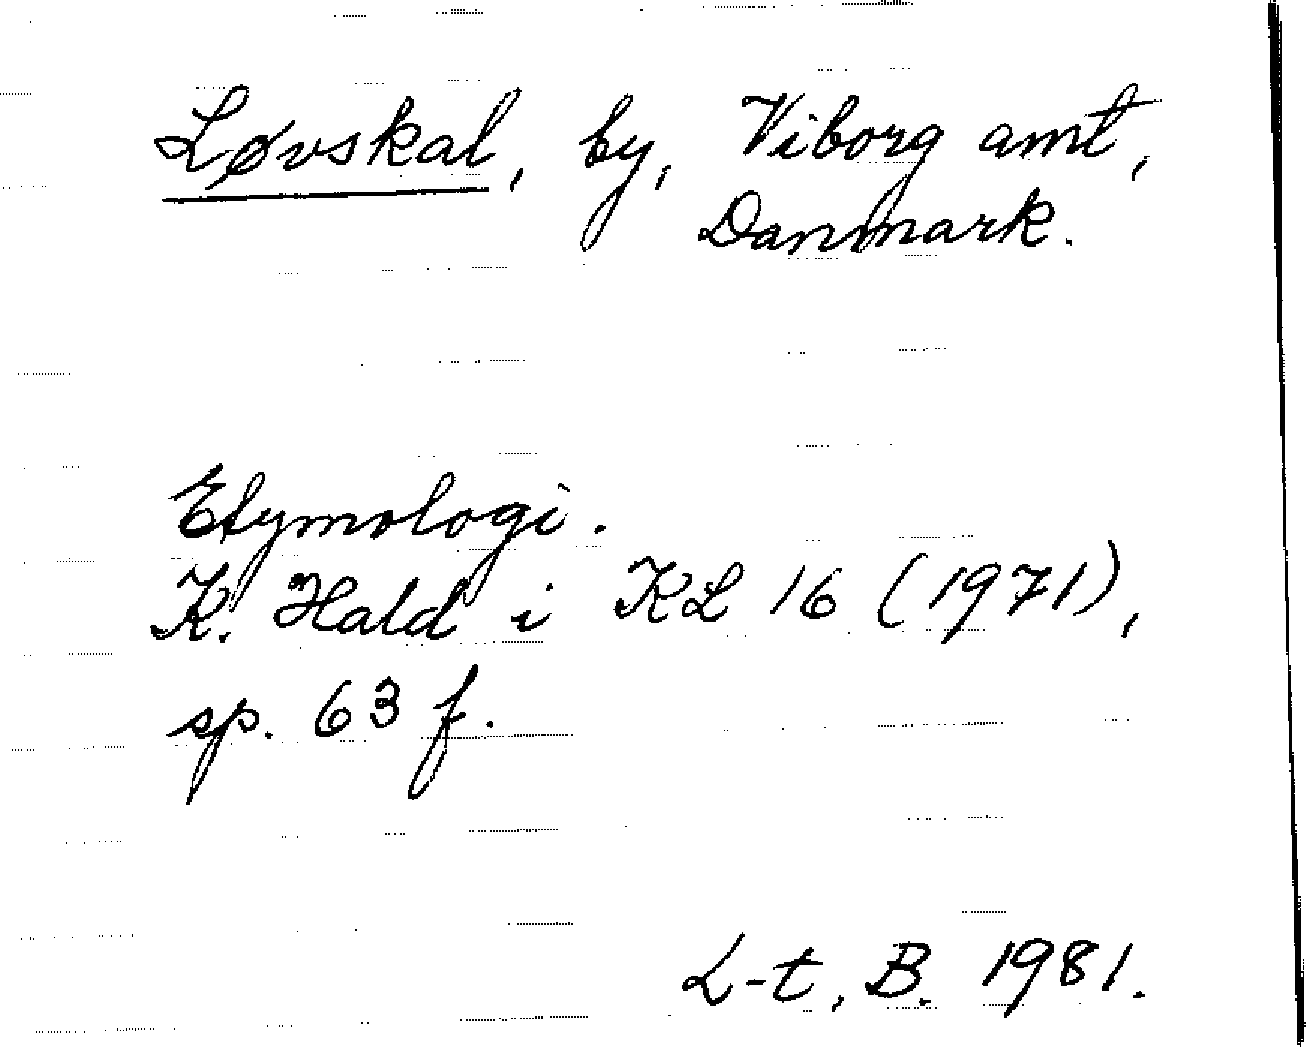 Løvskal, by, Viborg amt,
Danmark.
Etymologi.
K. Hald i KL 16 (1971),
sp. 63 f.
L-t, B. 1981.